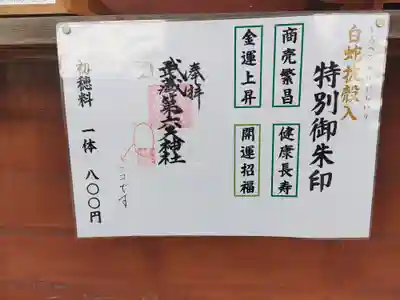 白蛇抜殻入
特別御朱印
商売繁昌
健康長寿
金運上昇
開運招福
奉拝
武蔵第六天神社
ココです
初穂料 一体 八〇〇円